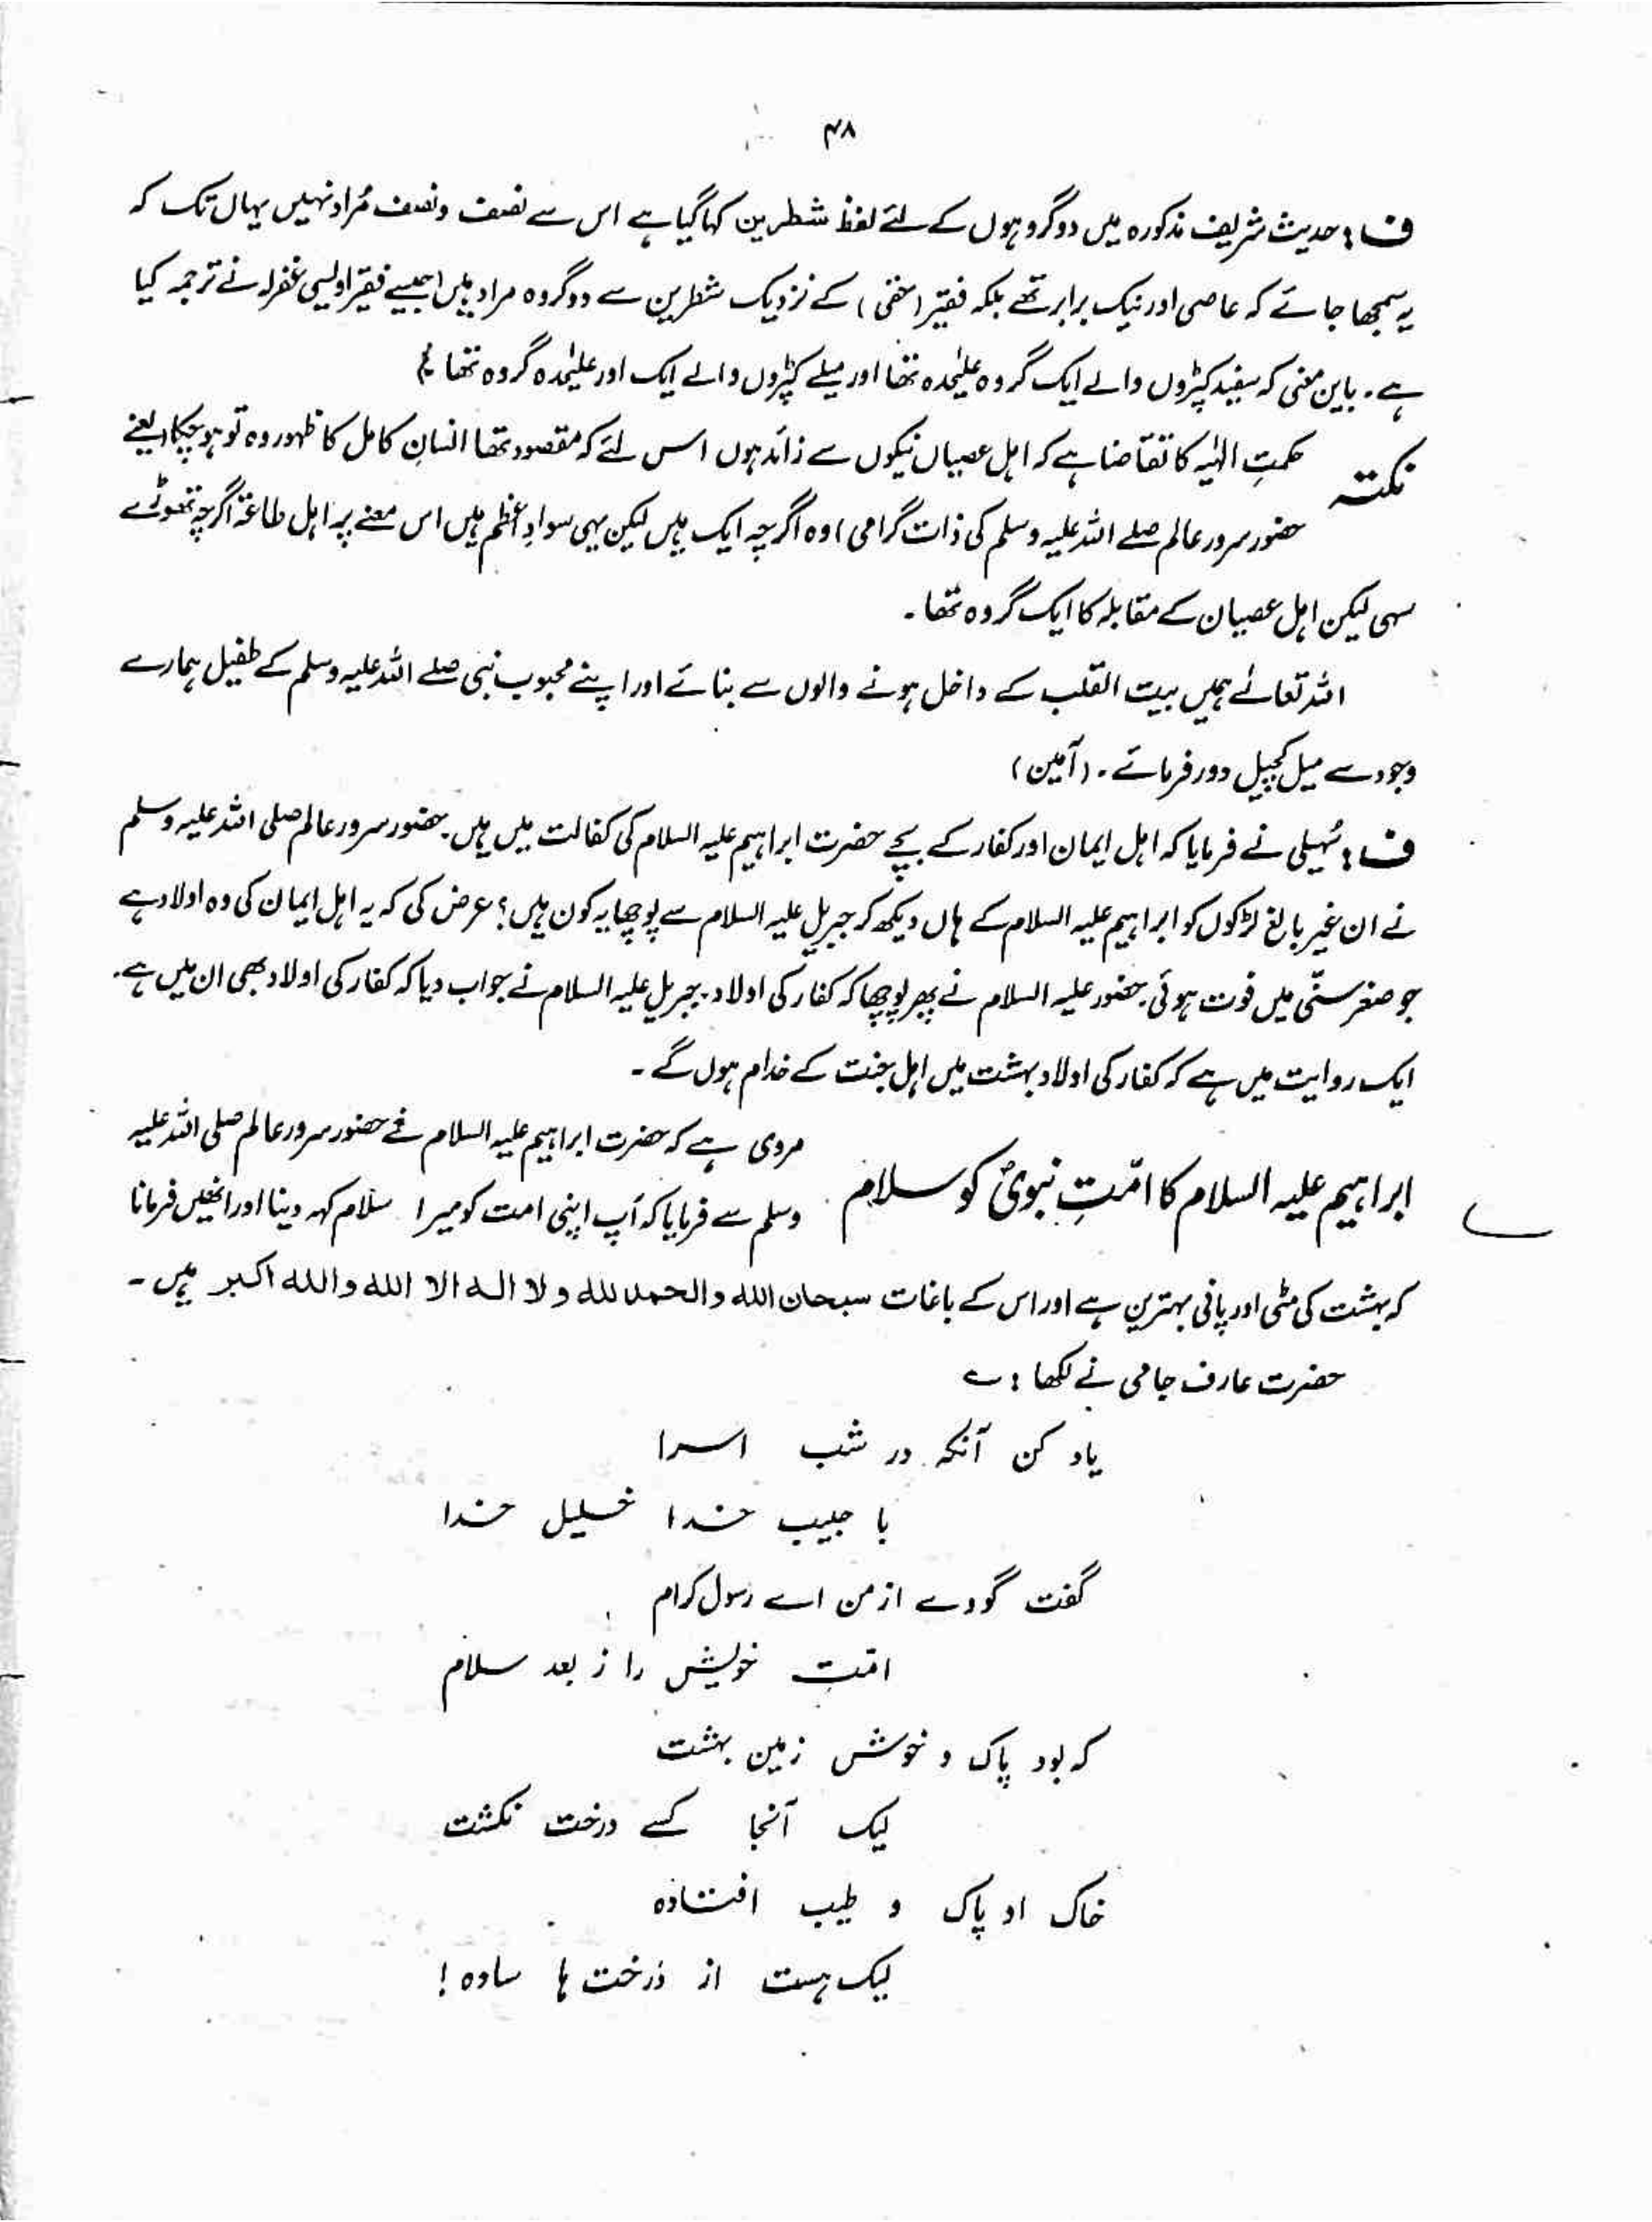 ۴۸
ف : حدیث شریف مذکورہ میں دو گروہوں کے لئے لفظ شطرین کہا گیا ہے اس سے نصف و نصف مُراد نہیں یہاں تک کہ
یہ سمجھا جائے کہ عاصی اور نیک برابر تھے بلکہ فقیر (حقی) کے نزدیک شطرین سے دو گروہ مراد ہیں (جیسے فقیر اویسی غفرلہ نے ترجمہ کیا
ہے۔ باین معنی کہ سفید کپڑوں والے ایک گروہ علیٰحدہ تھا اور میلے کپڑوں والے ایک اور علیٰحدہ گروہ تھا
نکتہ حکمتِ الٰہیہ کا تقاضا ہے کہ اہل عصیاں نیکوں سے زائد ہوں اس لئے کہ مقصود تھا انسانِ کامل کا ظہور وہ تو ہو چکا (یعنے
حضور سرور عالم صلے اللہ علیہ وسلم کی ذات گرامی) وہ اگرچہ ایک ہیں لیکن یہی سوادِ اعظم ہیں اس معنے پر اہل طاعۃ اگرچہ تھوڑے
سہی لیکن اہل عصیان کے مقابلہ کا ایک گروہ تھا۔
اللہ تعالےٰ ہمیں بیت القلب کے داخل ہونے والوں سے بنائے اور اپنے محبوب نبی صلے اللہ علیہ وسلم کے طفیل ہمارے
وجود سے میل کچیل دور فرمائے۔ (آمین)
ف : سُہیلی نے فرمایا کہ اہل ایمان اور کفار کے بچے حضرت ابراہیم علیہ السلام کی کفالت میں ہیں۔ حضور سرور عالم صلی اللہ علیہ وسلم
نے ان غیر بالغ لڑکوں کو ابراہیم علیہ السلام کے ہاں دیکھ کر جبریل علیہ السلام سے پوچھا یہ کون ہیں؟ عرض کی کہ یہ اہل ایمان کی وہ اولاد ہے
جو صغر سنّی میں فوت ہوئی۔ حضور علیہ السلام نے پھر پوچھا کہ کفار کی اولاد۔ جبریل علیہ السلام نے جواب دیا کہ کفار کی اولاد بھی ان میں ہے۔
ایک روایت میں ہے کہ کفار کی اولاد بہشت میں اہل جنت کے خدام ہوں گے۔
ابراہیم علیہ السلام کا امّتِ نبویؐ کو سلام
مروی ہے کہ حضرت ابراہیم علیہ السلام نے حضور سرور عالم صلی اللہ علیہ
وسلم سے فرمایا کہ آپ اپنی امت کو میرا سلام کہہ دینا اور انھیں فرمانا
کہ بہشت کی مٹی اور پانی بہترین ہے اور اس کے باغات سبحان اللہ والحمد للہ ولا الہ الا اللہ واللہ اکبر ہیں۔
حضرت عارف جامی نے لکھا : ؎
یاد کن آنکہ در شب اسرا
با حبیب خدا خلیل خدا
گفت گوے از من اے رسول کرام
امّتِ خویش را ز بعد سلام
کہ بود پاک و خوش زمین بہشت
لیک آنجا کسے درخت نکشت
خاک او پاک و طیب افتادہ
لیک ہست از درخت ہا سادہ!